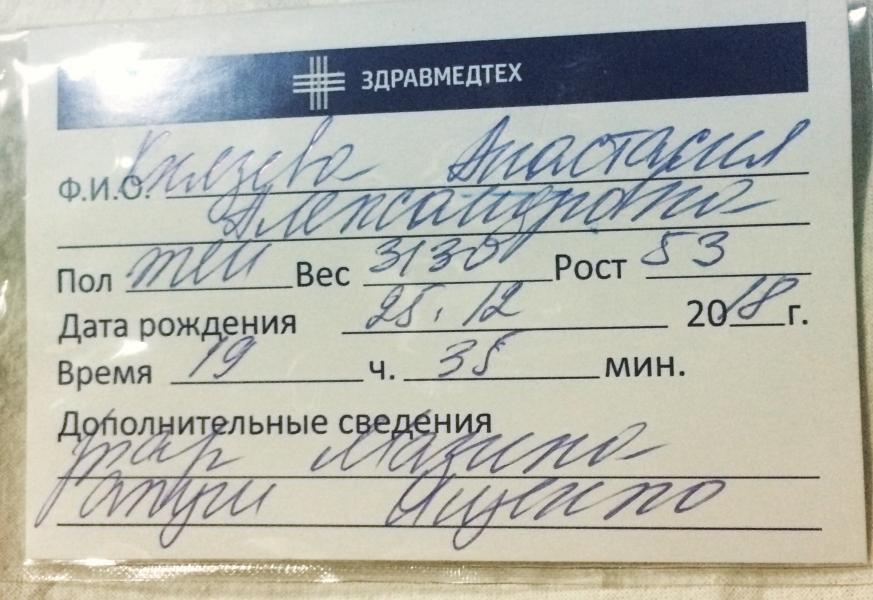 ЗДРАВМЕДТЕХ
Ф.И.О. Князева Анастасия
Александровна
Пол жен Вес 3130 Рост 53
Дата рождения 25.12 2018 г.
Время 19 ч. 35 мин.
Дополнительные сведения
Мазина
Ященко